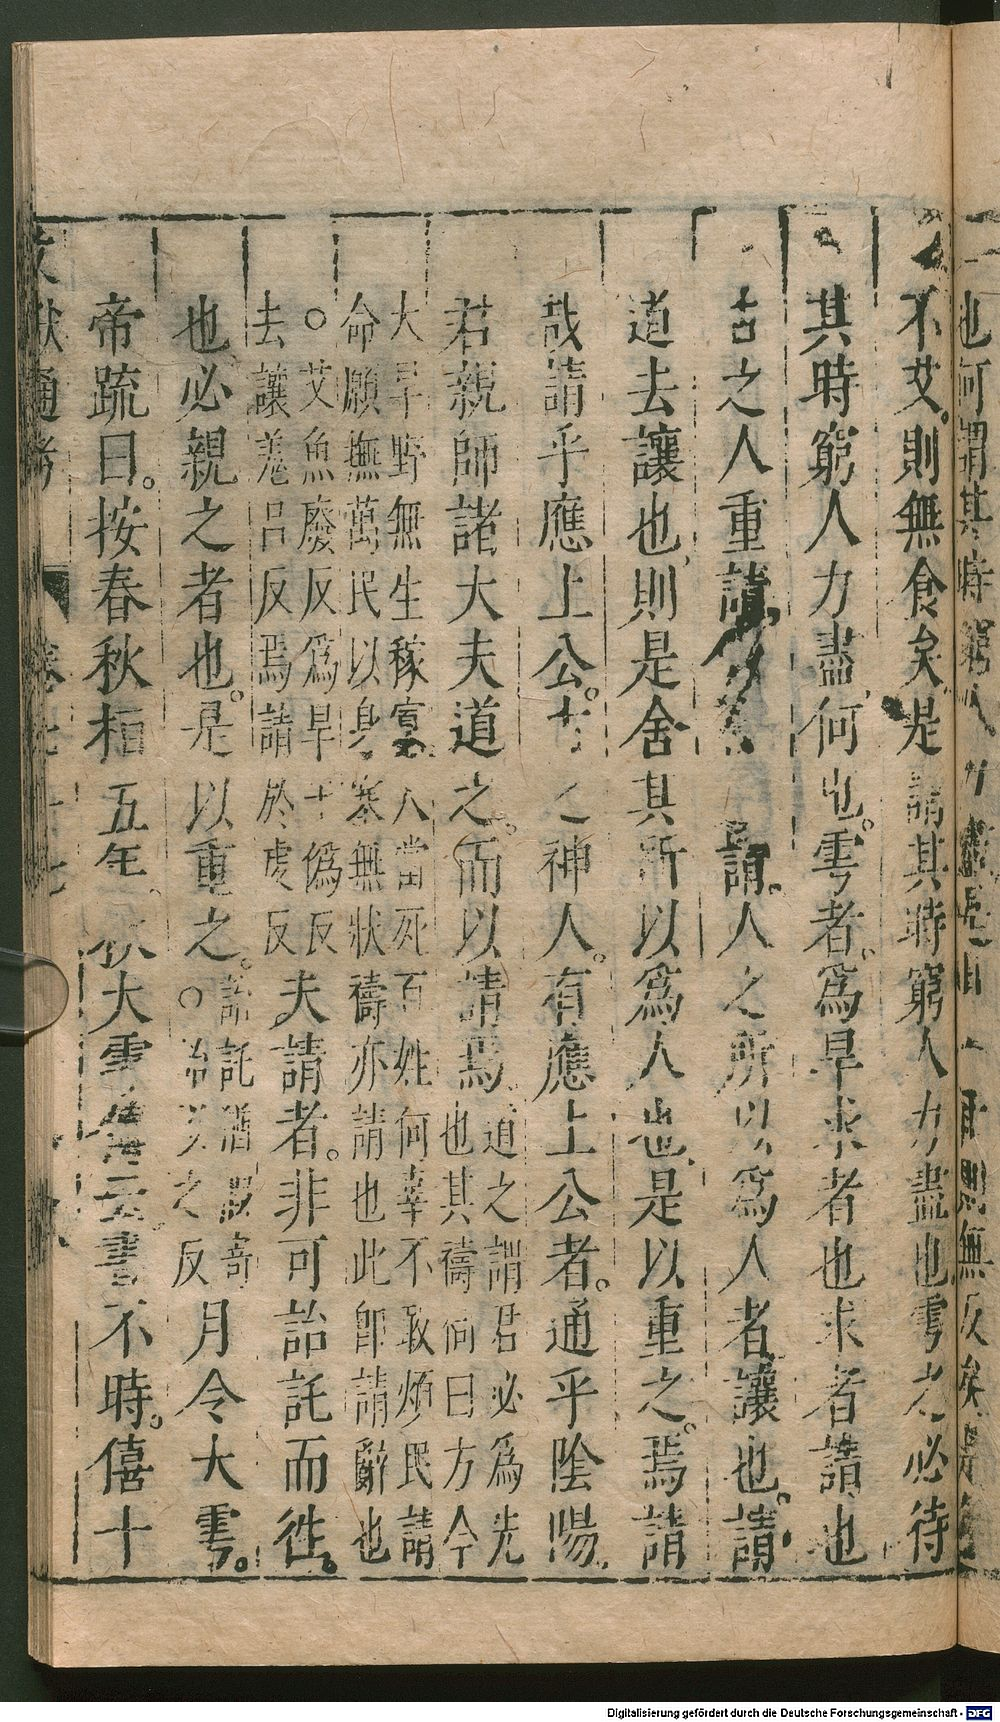 不艾則無食矣是謂其時窮人力盡也雩之必待
其時窮人力盡何也。雩者。爲旱求者也求者請也
古之人重請 謂。人之所以爲人者讓也。請
道去讓也則是舍其所以爲人也是以重之。焉請
哉請乎應上公。古之神人。有應上公者。通乎陰陽
君親帥諸大夫道之。而以請焉道之謂君必爲先也其禱詞曰方今
大旱野無生稼寡人當死百姓何辜不敢煩民請
命願撫萬民以身塞無狀禱亦請也此卽請辭也
○艾魚廢反爲旱于僞反
去讓羌呂反焉請於虔反夫請者。非可詒託而往。
也必親之者也。是以重之。詒託猶假寄○詒以之反月令大雩。
帝疏曰。按春秋桓五年。秋大雩傳云書不時。僖十
文獻通考 卷七十七
Digitalisierung gefördert durch die Deutsche Forschungsgemeinschaft - DFG